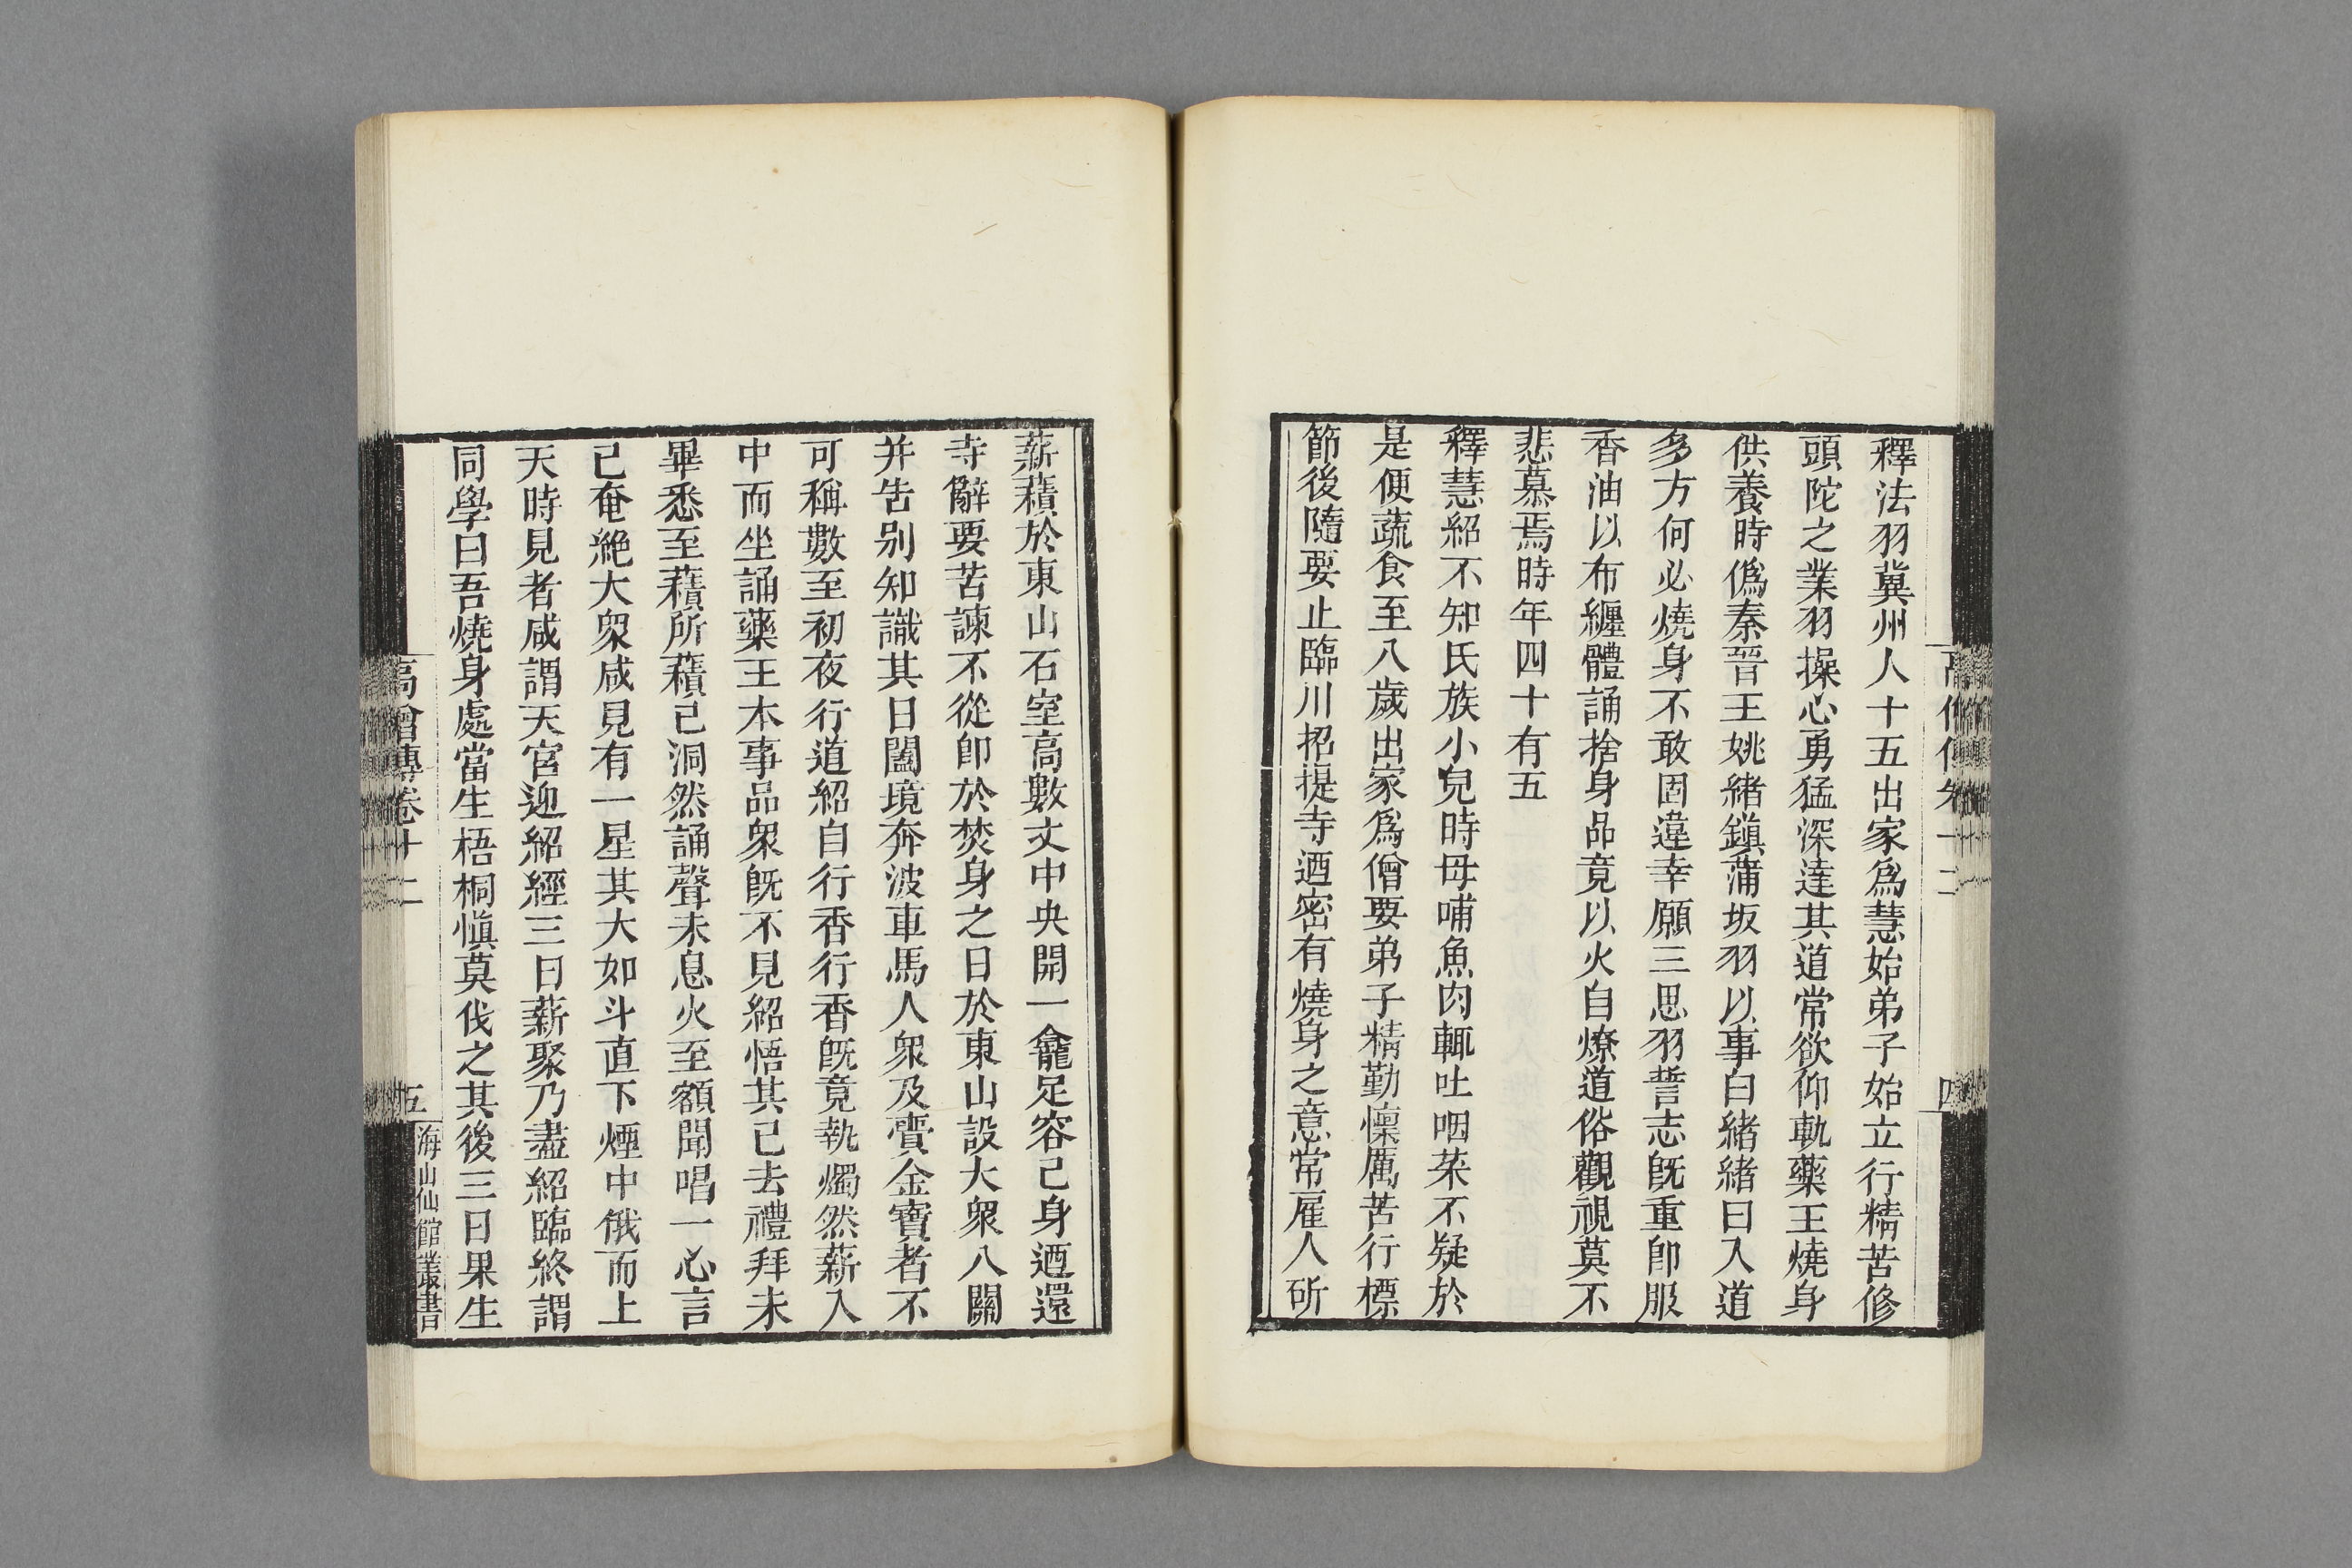 釋法羽冀州人十五出家爲慧始弟子始立行精苦修
頭陀之業羽操心勇猛深達其道常欲仰軌藥王燒身
供養時僞秦晉王姚緒鎮蒲坂羽以事白緒緒曰入道
多方何必燒身不敢固違幸願三思羽誓志旣重卽服
香油以布纏體誦捨身品竟以火自燎道俗觀視莫不
悲慕焉時年四十有五
釋慧紹不知氏族小兒時母哺魚肉輒吐咽菜不疑於
是便蔬食至八歲出家爲僧要弟子精勤懍厲苦行標
節後隨要止臨川招提寺迺密有燒身之意常雇人斫
薪積於東山石室高數丈中央開一龕足容己身迺還
寺辭要苦諫不從卽於焚身之日於東山設大衆八關
并告别知識其日闔境奔波車馬人衆及賷金寶者不
可稱數至初夜行道紹自行香行香旣竟執燭然薪入
中而坐誦藥王本事品衆旣不見紹悟其已去禮拜未
畢悉至薪所薪已洞然誦聲未息火至額聞唱一心言
已奄絶大衆咸見有一星其大如斗直下煙中俄而上
天時見者咸謂天宮迎紹經三日薪聚乃盡紹臨終謂
同學曰吾燒身處當生梧桐愼莫伐之其後三日果生
高僧傳卷十二
五
海山仙館叢書